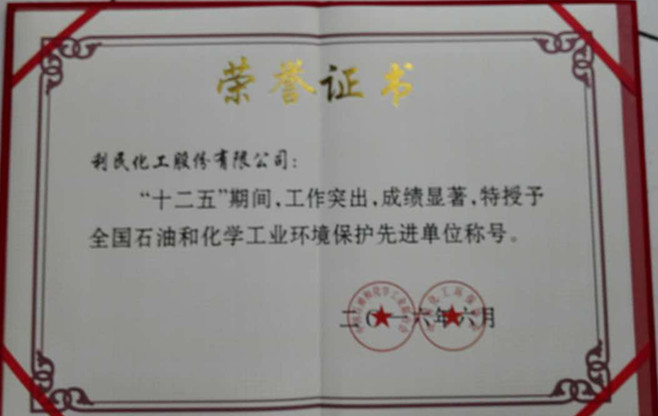 荣誉证书
利民化工股份有限公司：
“十二五”期间，工作突出，成绩显著，特授予
全国石油和化学工业环境保护先进单位称号。
二〇一六年六月